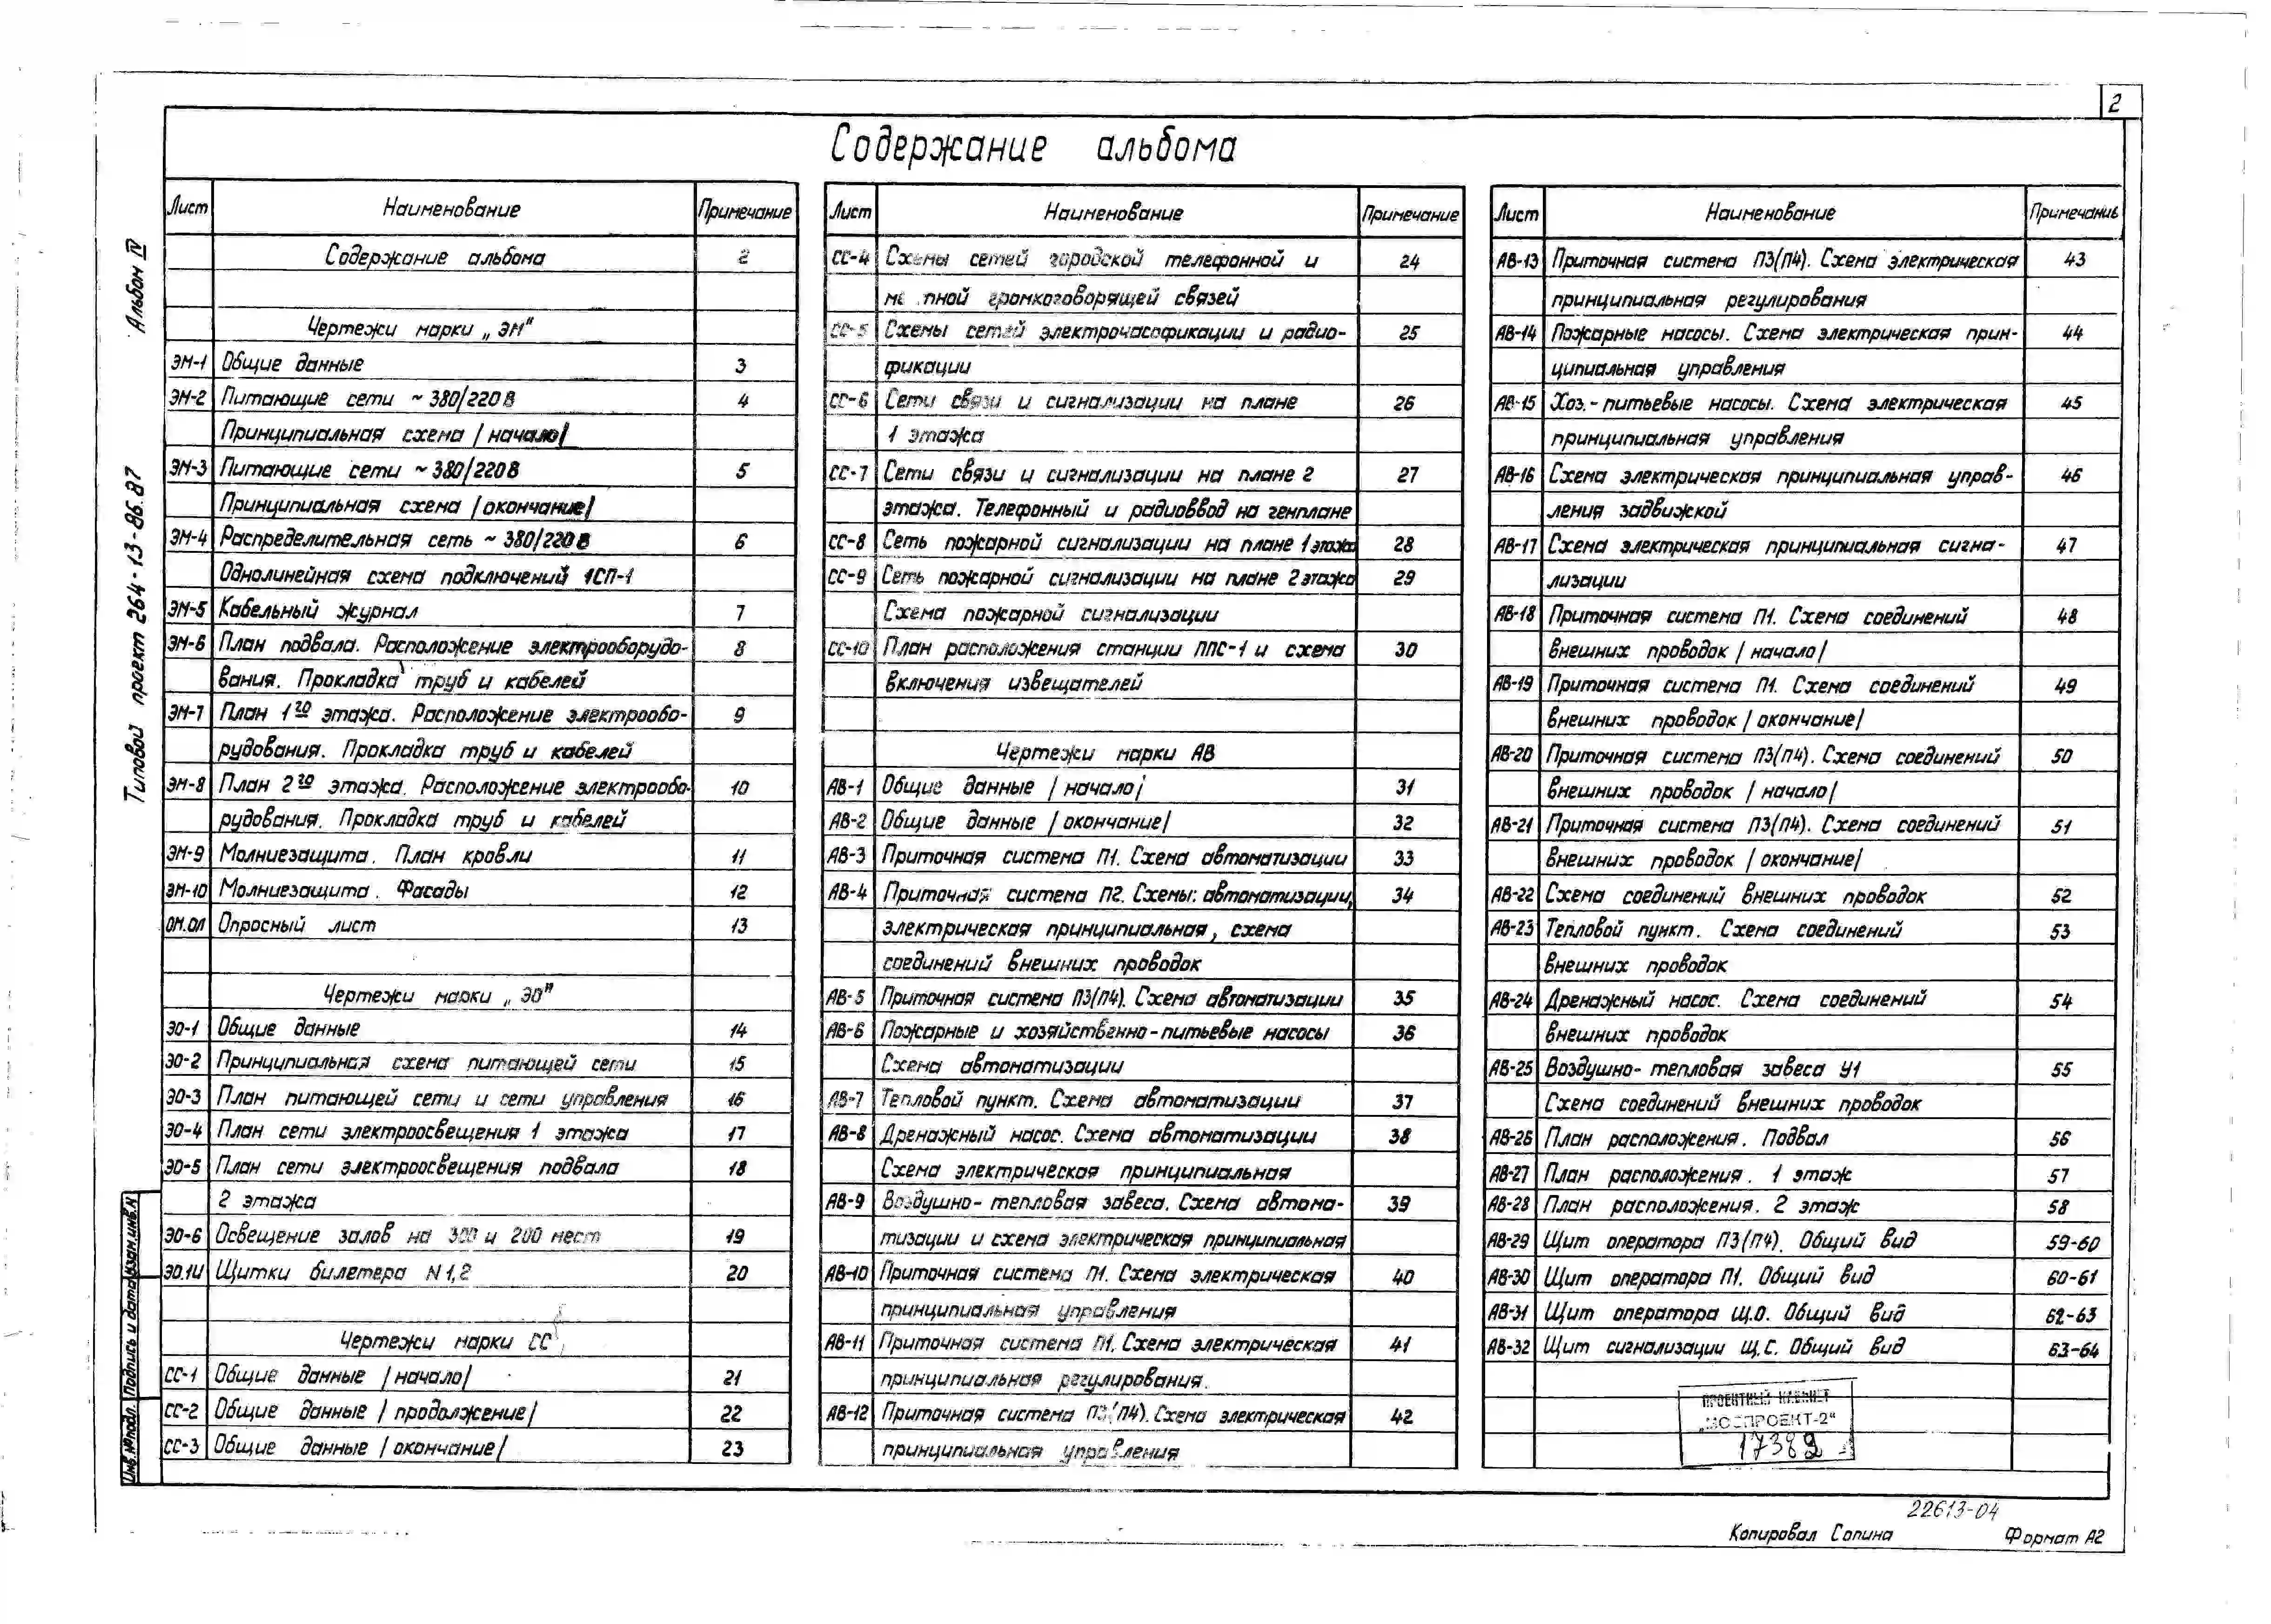 2
Содержание альбома
Альбом IV
Типовой проект 264-13-86.87
Лист Наименование Примечание
Содержание альбома 2
Чертежи марки „ЭМ"
ЭМ-1 Общие данные 3
ЭМ-2 Питающие сети ~380/220В 4
Принципиальная схема /начало/
ЭМ-3 Питающие сети ~380/220В 5
Принципиальная схема /окончание/
ЭМ-4 Распределительная сеть ~380/220В 6
Однолинейная схема подключений 1СП-1
ЭМ-5 Кабельный журнал 7
ЭМ-6 План подвала. Расположение электрооборудо- 8
вания. Прокладка труб и кабелей
ЭМ-7 План 1го этажа. Расположение электрообо- 9
рудования. Прокладка труб и кабелей
ЭМ-8 План 2го этажа. Расположение электрообо- 10
рудования. Прокладка труб и кабелей
ЭМ-9 Молниезащита. План кровли 11
ЭМ-10 Молниезащита. Фасады 12
ОМ.ОЛ Опросный лист 13
Чертежи марки „ЭО"
ЭО-1 Общие данные 14
ЭО-2 Принципиальная схема питающей сети 15
ЭО-3 План питающей сети и сети управления 16
ЭО-4 План сети электроосвещения 1 этажа 17
ЭО-5 План сети электроосвещения подвала 18
2 этажа
ЭО-6 Освещение залов на 300 и 200 мест 19
ЭО.1И Щитки билетера N1,2 20
Чертежи марки СС
СС-1 Общие данные /начало/ 21
СС-2 Общие данные /продолжение/ 22
СС-3 Общие данные /окончание/ 23
Лист Наименование Примечание
СС-4 Схемы сетей городской телефонной и 24
пной громкоговорящей связей
СС-5 Схемы сетей электрочасофикации и радио- 25
фикации
СС-6 Сети связи и сигнализации на плане 26
1 этажа
СС-7 Сети связи и сигнализации на плане 2 27
этажа. Телефонный и радиоввод на генплане
СС-8 Сеть пожарной сигнализации на плане 1 этажа 28
СС-9 Сеть пожарной сигнализации на плане 2 этажа 29
Схема пожарной сигнализации
СС-10 План расположения станции ППС-1 и схема 30
включения извещателей
Чертежи марки АВ
АВ-1 Общие данные /начало/ 31
АВ-2 Общие данные /окончание/ 32
АВ-3 Приточная система П1. Схема автоматизации 33
АВ-4 Приточная система П2. Схемы: автоматизации, 34
электрическая принципиальная, схема
соединений внешних проводок
АВ-5 Приточная система П3(П4). Схема автоматизации 35
АВ-6 Пожарные и хозяйственно-питьевые насосы 36
Схема автоматизации
АВ-7 Тепловой пункт. Схема автоматизации 37
АВ-8 Дренажный насос. Схема автоматизации 38
Схема электрическая принципиальная
АВ-9 Воздушно-тепловая завеса. Схема автома- 39
тизации и схема электрическая принципиальная
АВ-10 Приточная система П1. Схема электрическая 40
принципиальная управления
АВ-11 Приточная система П1. Схема электрическая 41
принципиальная регулирования.
АВ-12 Приточная система П3(П4). Схема электрическая 42
принципиальная управления
Лист Наименование Примечание
АВ-13 Приточная система П3(П4). Схема электрическая 43
принципиальная регулирования
АВ-14 Пожарные насосы. Схема электрическая прин- 44
ципиальная управления
АВ-15 Хоз.-питьевые насосы. Схема электрическая 45
принципиальная управления
АВ-16 Схема электрическая принципиальная управ- 46
ления задвижкой
АВ-17 Схема электрическая принципиальная сигна- 47
лизации
АВ-18 Приточная система П1. Схема соединений 48
внешних проводок /начало/
АВ-19 Приточная система П1. Схема соединений 49
внешних проводок /окончание/
АВ-20 Приточная система П3(П4). Схема соединений 50
внешних проводок /начало/
АВ-21 Приточная система П3(П4). Схема соединений 51
внешних проводок /окончание/
АВ-22 Схема соединений внешних проводок 52
АВ-23 Тепловой пункт. Схема соединений 53
внешних проводок
АВ-24 Дренажный насос. Схема соединений 54
внешних проводок
АВ-25 Воздушно-тепловая завеса У1 55
Схема соединений внешних проводок
АВ-26 План расположения. Подвал 56
АВ-27 План расположения. 1 этаж 57
АВ-28 План расположения. 2 этаж 58
АВ-29 Щит оператора П3(П4). Общий вид 59-60
АВ-30 Щит оператора П1. Общий вид 60-61
АВ-31 Щит оператора Щ.О. Общий вид 62-63
АВ-32 Щит сигнализации Щ.С. Общий вид 63-64
ПРОЕКТНЫЙ КАБИНЕТ
„МОСПРОЕКТ-2"
17382
Инв.№подл. Подпись и дата Взам.инв.N
22613-04
Копировал Сопина Формат А2